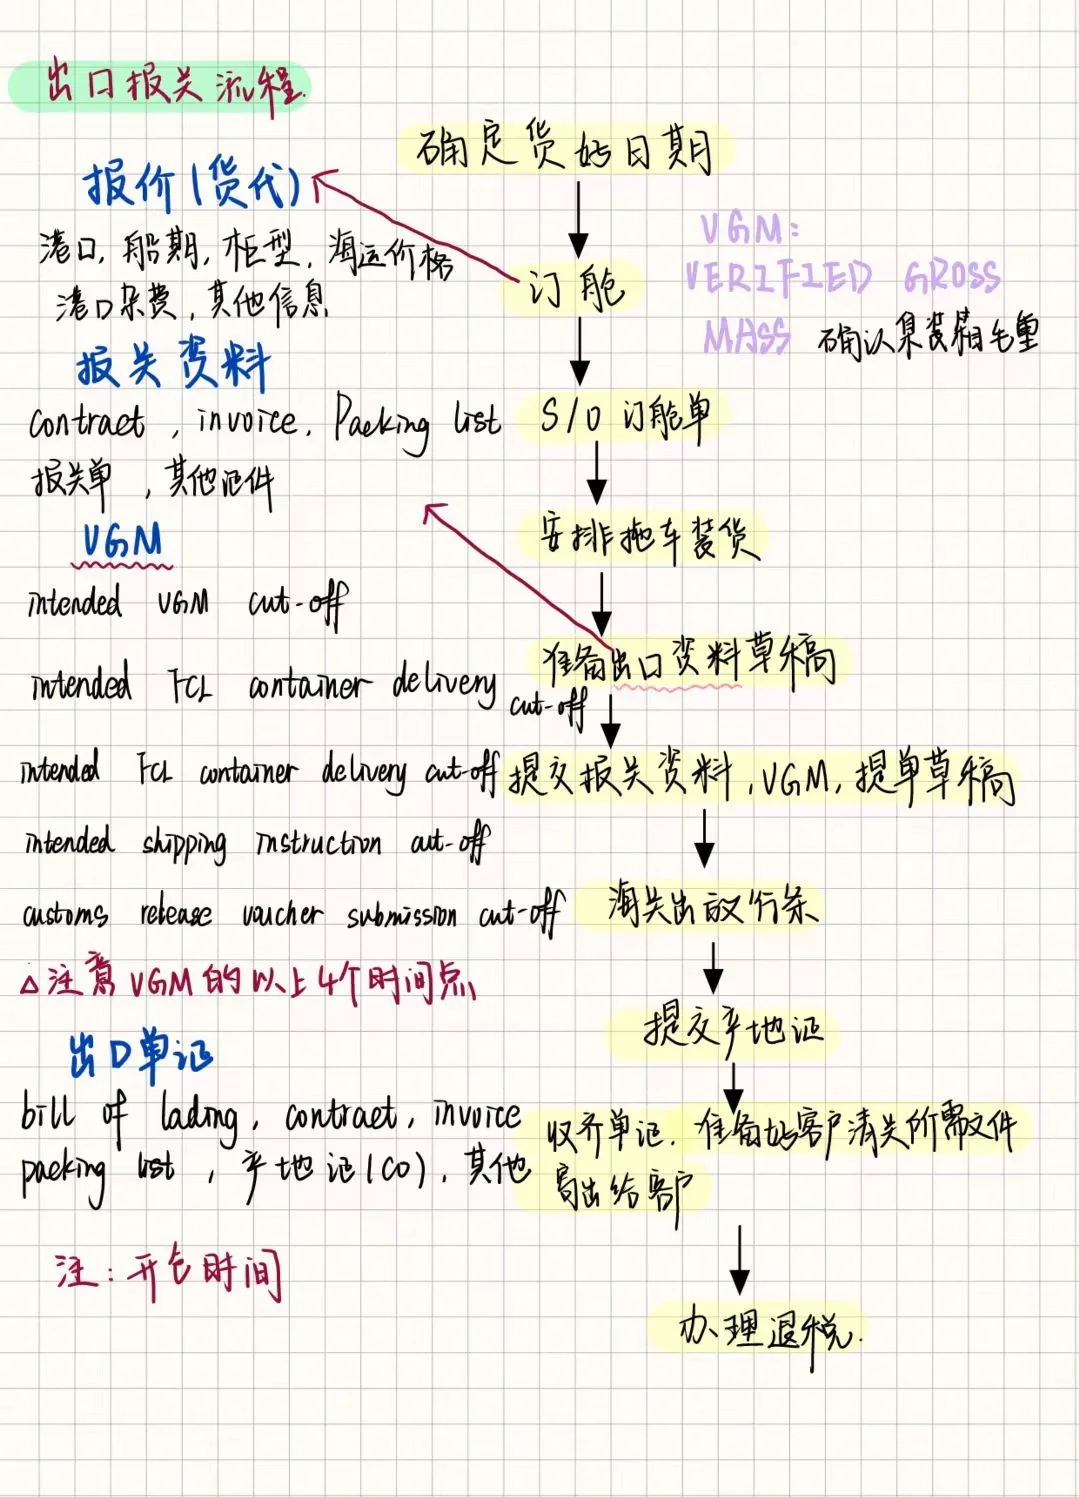 出口报关流程
确定货好日期
报价(货代)
港口,船期,柜型,海运价格
港口杂费,其他信息
订舱
VGM:
VERIFIED GROSS
MASS 确认集装箱毛重
报关资料
contract , invoice, Packing list
报关单 ,其他证件
S/O 订舱单
安排拖车装货
VGM
intended VGM cut-off
intended FCL container delivery cut-off
准备出口资料草稿
intended FCL container delivery cut-off
提交报关资料,VGM,提单草稿
intended shipping instruction cut-off
customs release voucher submission cut-off
海关出放行条
△注意VGM的以上4个时间点
提交产地证
出口单证
bill of lading, contract, invoice
packing list , 产地证(CO), 其他
收齐单证. 准备好客户清关所需文件
寄出给客户
注:开仓时间
办理退税.